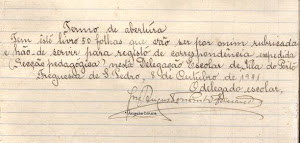 Termo de abertúra
Tem êste livro 50 folhas que vão ser por mim rubricadas
e hão-de servir para registo de correspondência expedida
(Secção pedagógica) nesta Delegação Escolar de Vila do Porto
Freguesia de S. Pedro, 8 de Outubro de 1931
O delegado escolar,
José